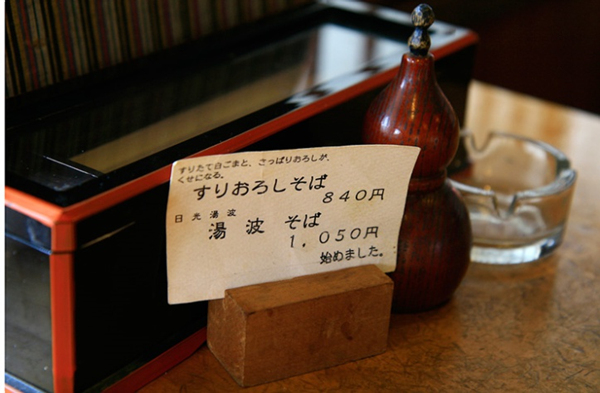 すりたて白ごまと、さっぱりおろしが、
くせになる。
すりおろしそば
840円
日光湯波
湯波そば
1,050円
始めました。